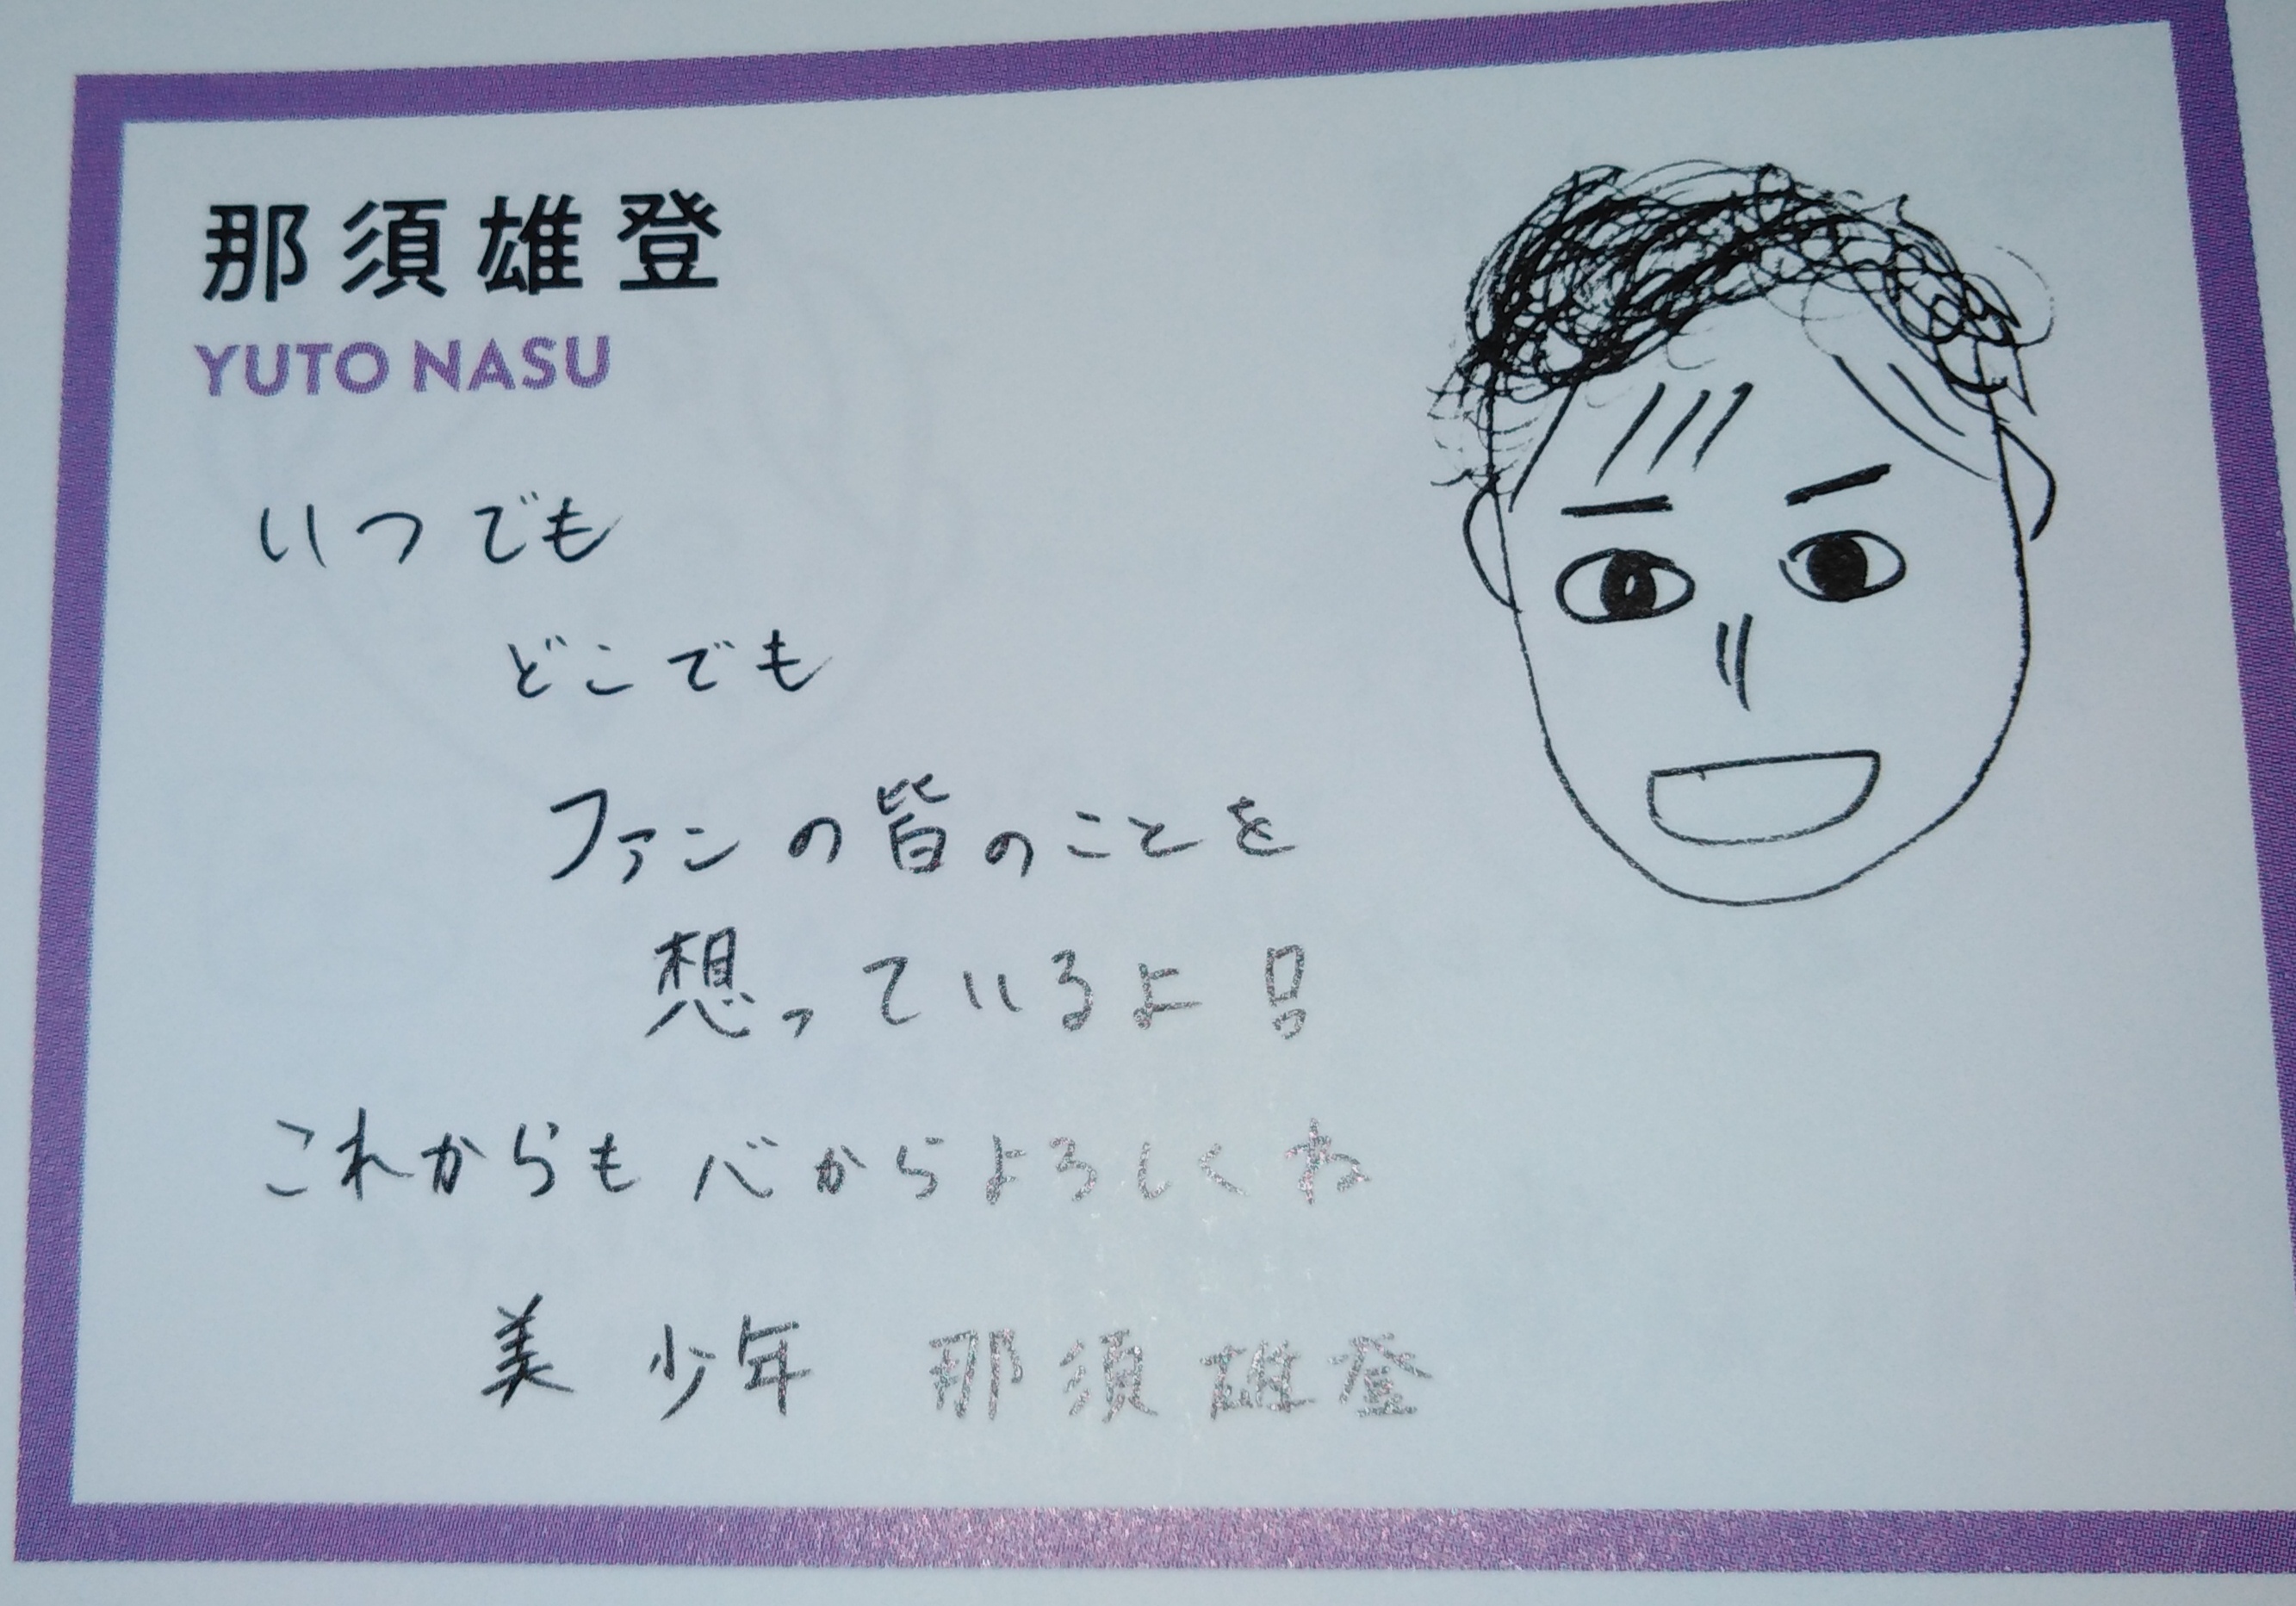 那須雄登
YUTO NASU
いつでも
どこでも
ファンの皆のことを
想っているよ!
これからも心からよろしくね
美 少年 那須雄登